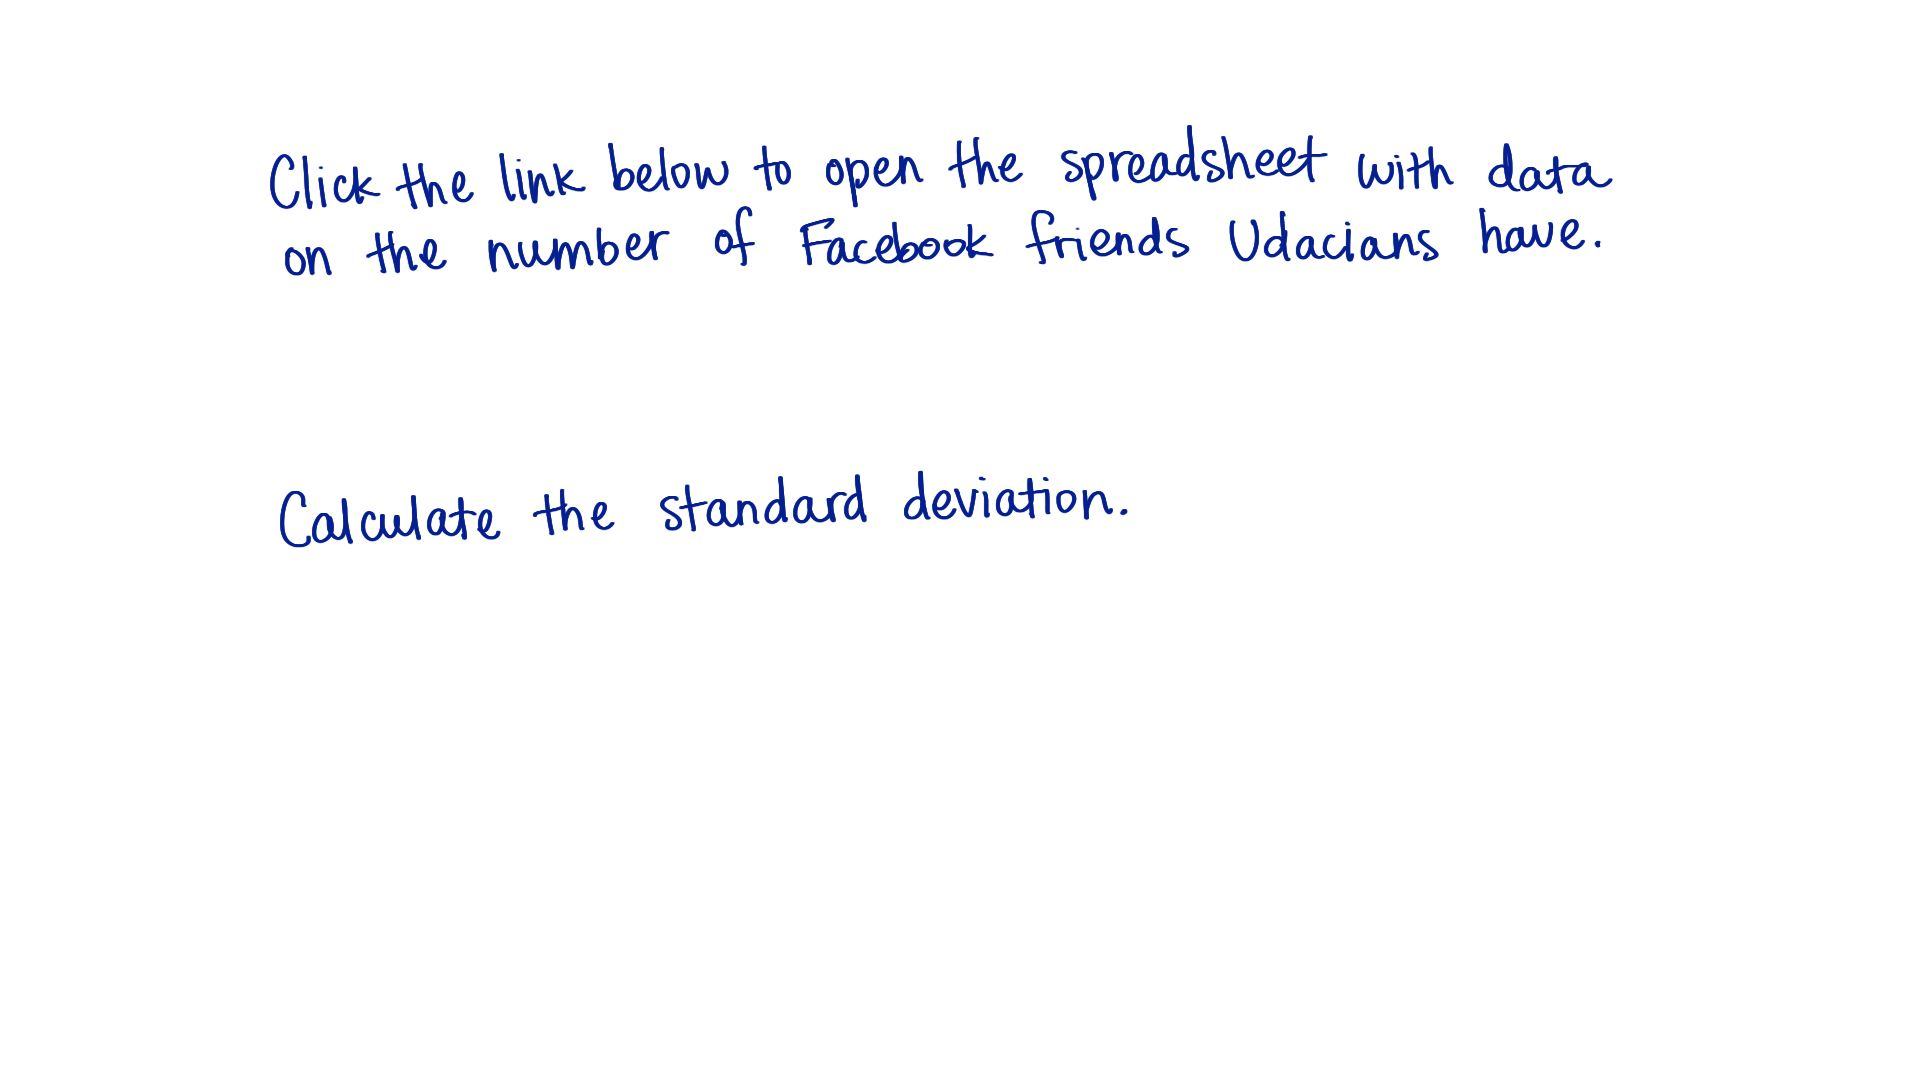 Click the link below to open the spreadsheet with data
on the number of Facebook friends Udacians have.
Calculate the standard deviation.